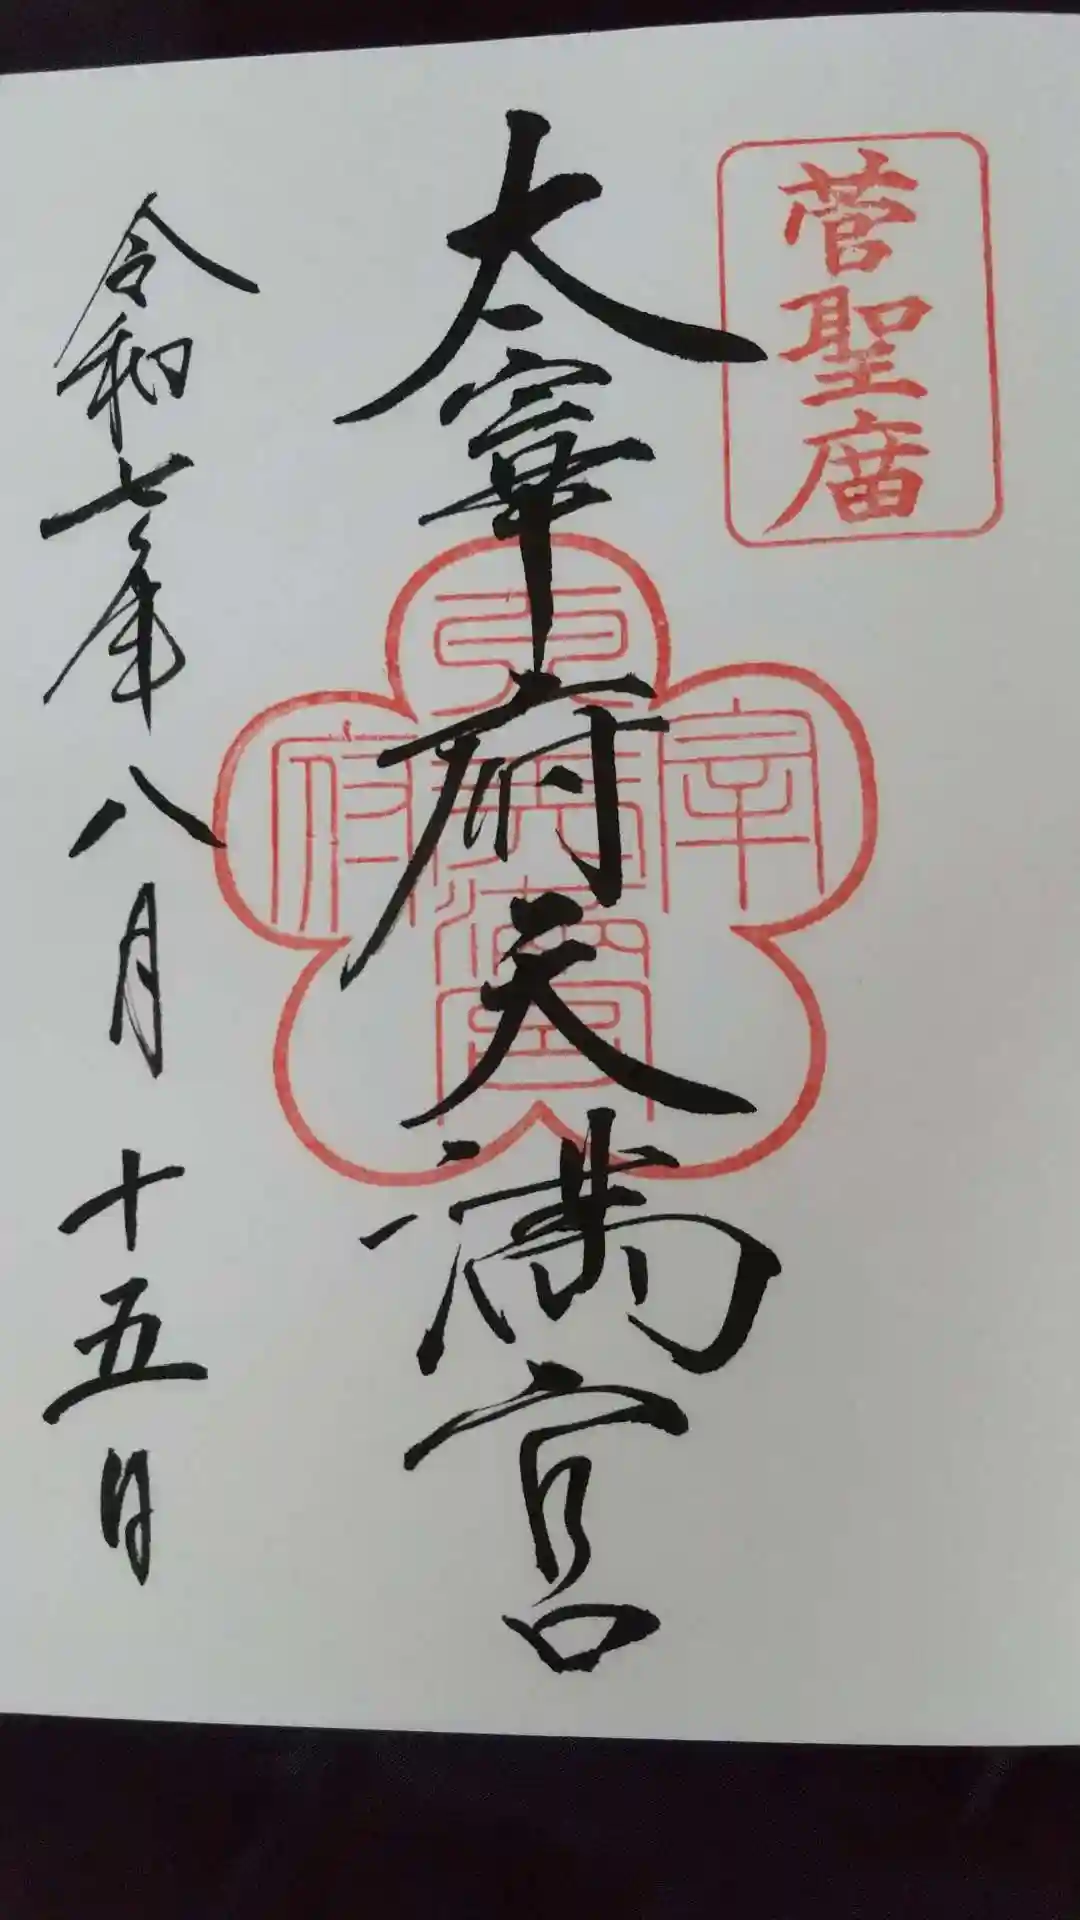 菅聖廟
太宰府天満宮
太宰府天満宮
令和七年八月十五日